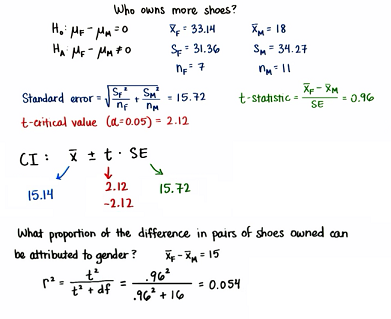 Who owns more shoes?
H₀: μF - μM = 0    x̄F = 33.14    x̄M = 18
HA: μF - μM ≠ 0    SF = 31.36    SM = 34.27
nF = 7    nM = 11
Standard error = √(SF²/nF + SM²/nM) = 15.72    t-statistic = (x̄F - x̄M)/SE = 0.96
t-critical value (α=0.05) = 2.12
CI: x̄ ± t · SE
15.14    2.12    15.72
-2.12
What proportion of the difference in pairs of shoes owned can
be attributed to gender?    x̄F - x̄M = 15
r² = t²/(t² + df) = .96²/(.96² + 16) = 0.054